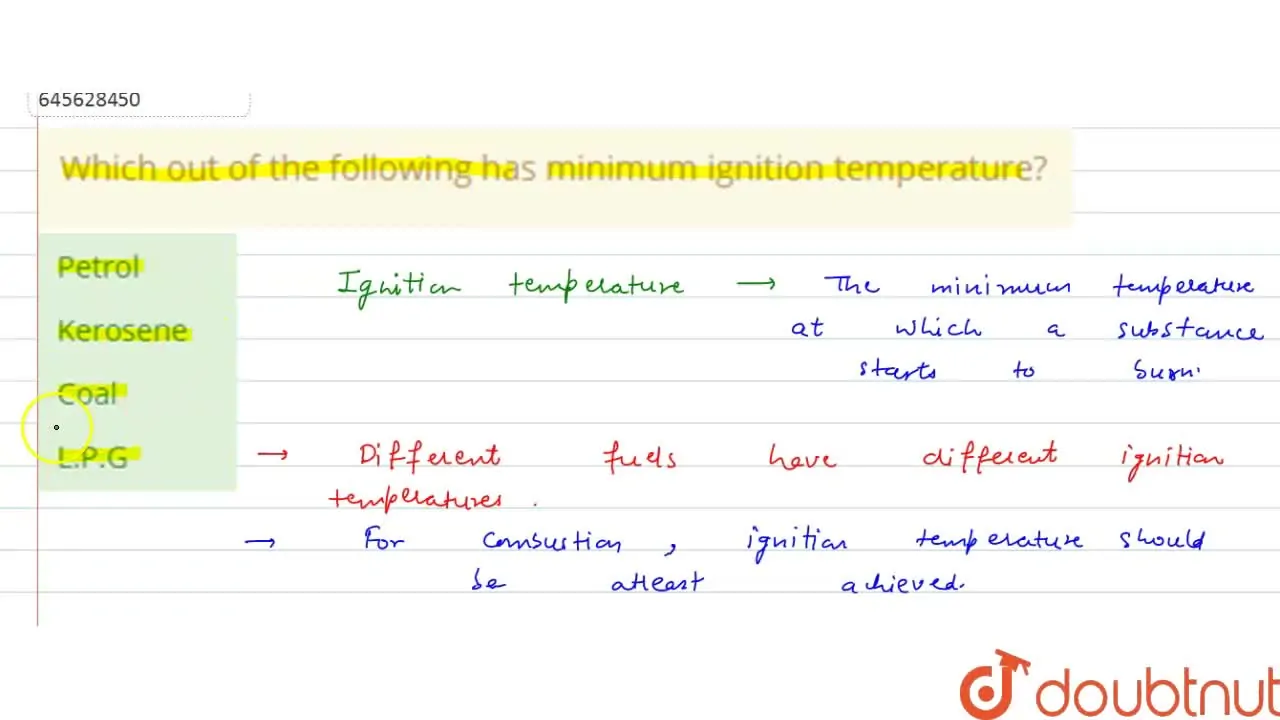 645628450
Which out of the following has minimum ignition temperature?
Petrol
Ignition temperature → The minimum temperature
Kerosene
at which a substance
starts to burn.
Coal
L.P.G
→ Different fuels have different ignition
temperatures.
→ For combustion, ignition temperature should
be atleast achieved.
doubtnut